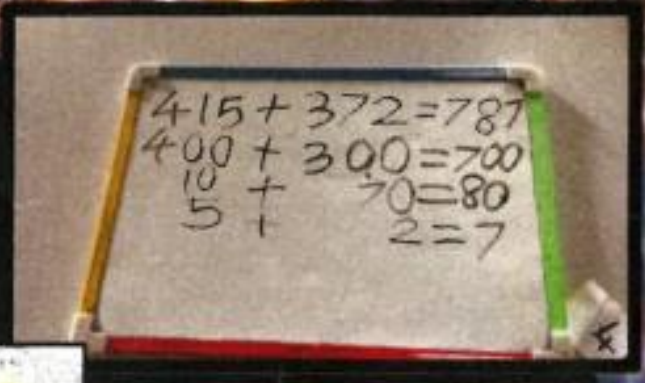 415+372=787
400+300=700
10 + 70=80
5 + 2=7